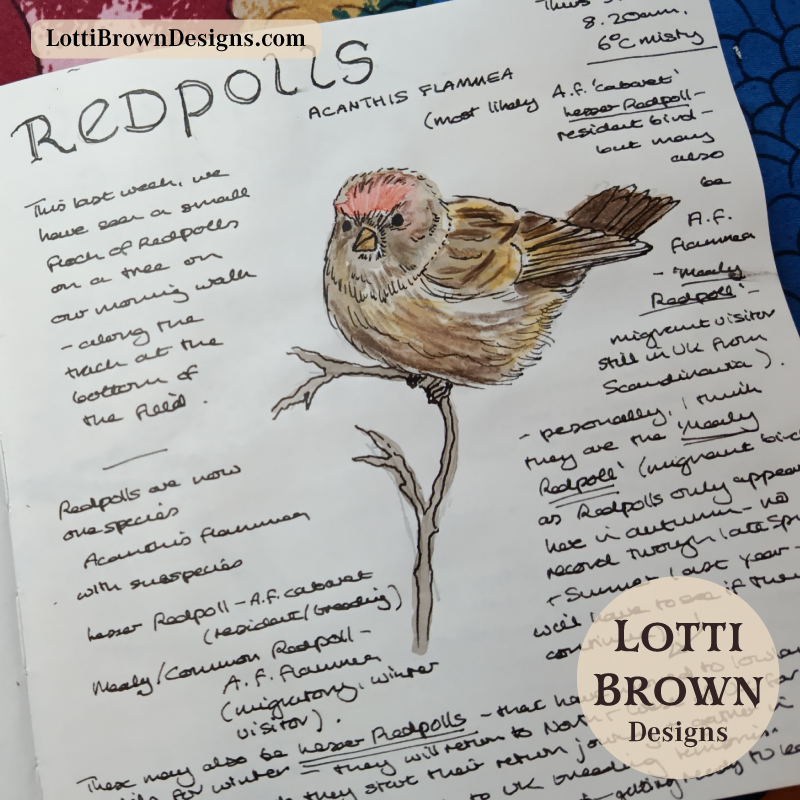 LottiBrownDesigns.com
8.20am,
6°C misty
REDPOLLS
ACANTHIS FLAMMEA
(most likely A.f. 'cabaret'
lesser Redpoll -
resident bird -
but may
also
be
A.f.
flammea
- 'mealy
Redpoll' -
migrant visitor
still in UK from
Scandinavia).
This last week, we
have seen a small
flock of Redpolls
on a tree on
our morning walk
- along the
track at the
bottom of
the field.
- personally, I think
they are the 'mealy
Redpoll' (migrant bird
as Redpolls only appear
here in autumn - no
record through late
+ Summer last year -
we'll have to see if they
Redpolls are now
one species
Acanthis flammea
with subspecies
lesser Redpoll - A.f. cabaret
(resident/breeding)
Mealy/Common Redpoll -
A.f. flammea
(migratory, winter
visitor).
These may also be lesser Redpolls - that have
for winter - they will return to
they start their return
to UK breeding
getting ready to
LOTTI
BROWN
Designs